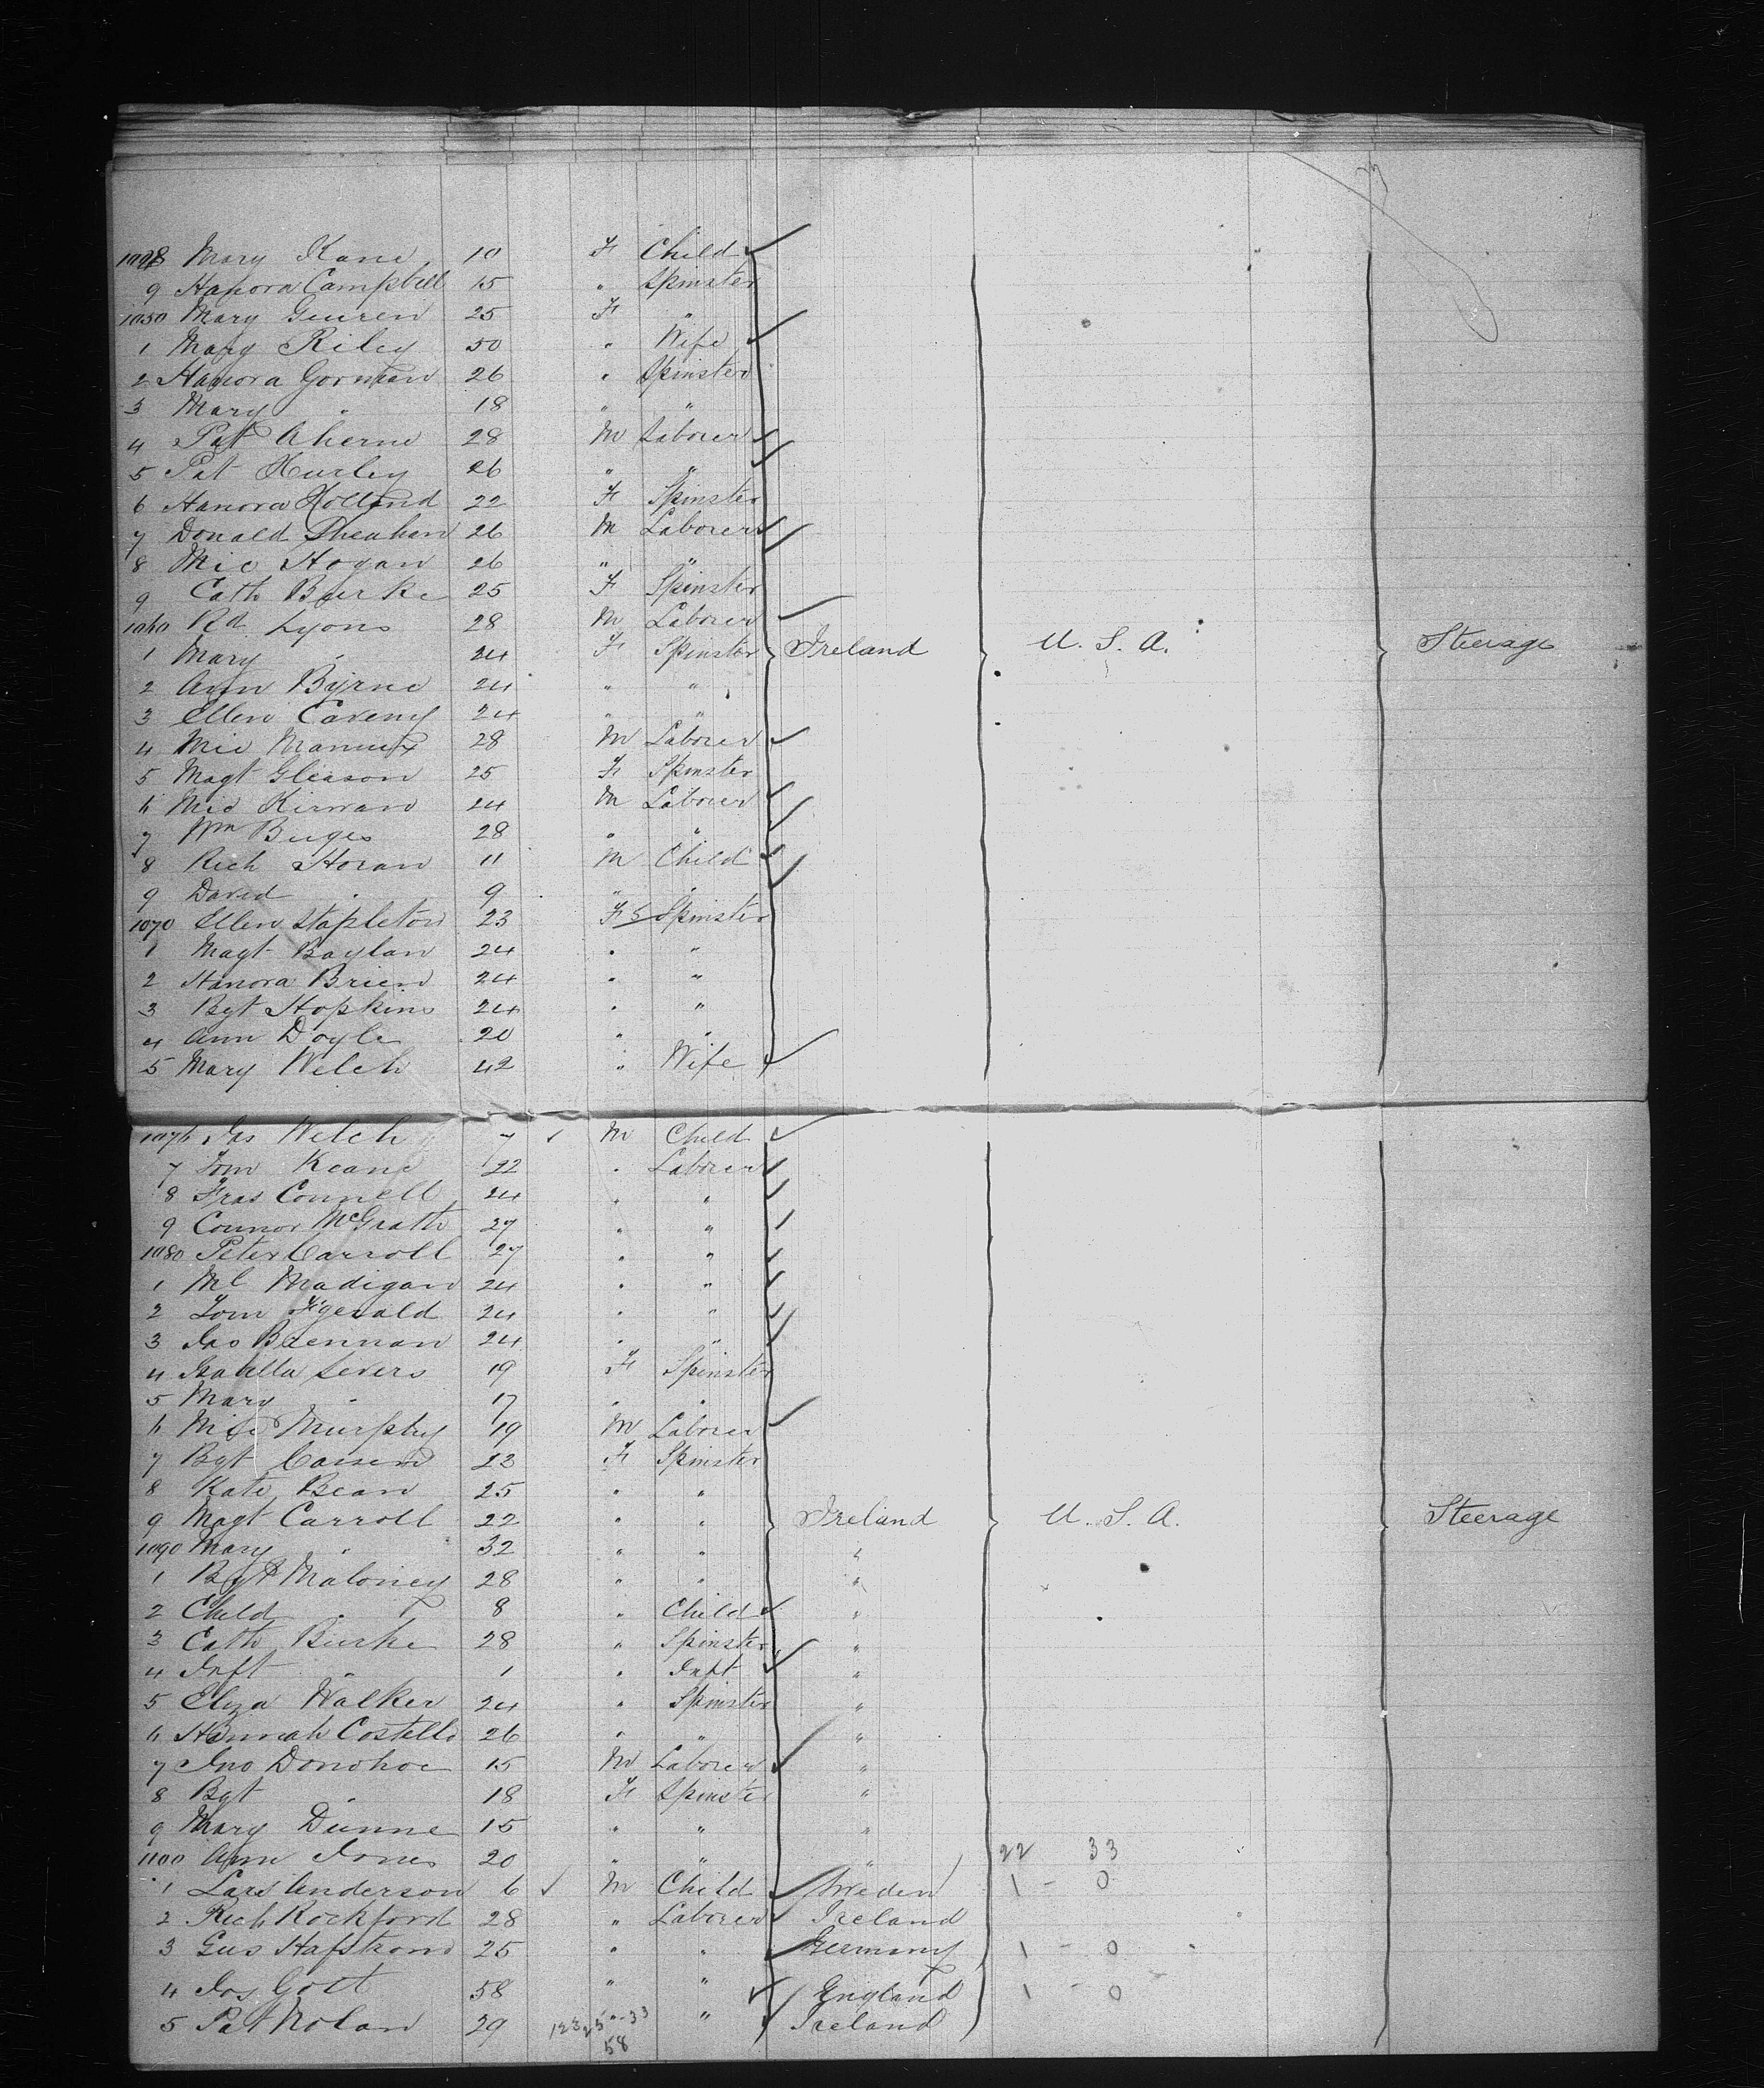 1048 Mary Kane 10 F Child
9 Hanora Campbell 15 " Spinster
1050 Mary 25 F "
1 Mary Riley 50 " Wife
2 Hanora Gorman 26 " Spinster
3 Mary " 18 " "
4 Pat Aherne 28 M Laborer
5 Pat Hurley 26 " "
6 Hanora Holland 22 F Spinster
7 Donald Sheahan 26 M Laborer
8 Mic Hogan 26 " "
9 Cath Burke 25 F Spinster
1060 Rd Lyons 28 M Laborer
1 Mary " 24 F Spinster Ireland U. S. A. Steerage
2 Ann Byrne 24 " "
3 Ellen Caveny 24 " "
4 Mic Mannix 28 M Laborer
5 Magt Gleason 25 F Spinster
6 Mic Kirwan 24 M Laborer
7 Wm Buges 28 " "
8 Rich Horan 11 M Child
9 David " 9 " "
1070 Ellen Stapleton 23 F Spinster
1 Magt Baylan 24 " "
2 Hanora Brien 24 " "
3 Bgt Hopkins 24 " "
4 Ann Doyle 20 " "
5 Mary Welch 42 " Wife
1076 Jas Welch 7 M Child
7 Tom Keane 22 " Laborer
8 Fras Connell 24 " "
9 Connor McGrath 27 " "
1080 Peter Carroll 27 " "
1 Ml Madigan 24 " "
2 Tom Fgerald 24 " "
3 Jas Brennan 24 " "
4 Isabella Severs 19 F Spinster
5 Mary " 17 " "
6 Mic Murphy 19 M Laborer
7 Bgt 23 F Spinster
8 Kate Bean 25 " "
9 Magt Carroll 22 " " Ireland U. S. A. Steerage
1090 Mary " 32 " " "
1 Bgt Maloney 28 " " "
2 Child " 8 " Child "
3 Cath Burke 28 " Spinster "
4 Inft " 1 " Inft "
5 Eliza Walker 24 " Spinster "
6 Hannah Costello 26 " " "
7 Jno Donohoe 15 M Laborer "
8 Bgt " 18 F Spinster "
9 Mary Dunne 15 " " "
1100 Ann Jones 20 " " " 22 33
1 Lars Anderson 6 M Child Sweden 1 - 0
2 Rich Rockford 28 " Laborer Ireland
3 Gus Hafstrom 25 " " Germany 1 - 0
4 Jos Gott 58 " " England 1 - 0
5 Pat Nolan 29 " Ireland
58